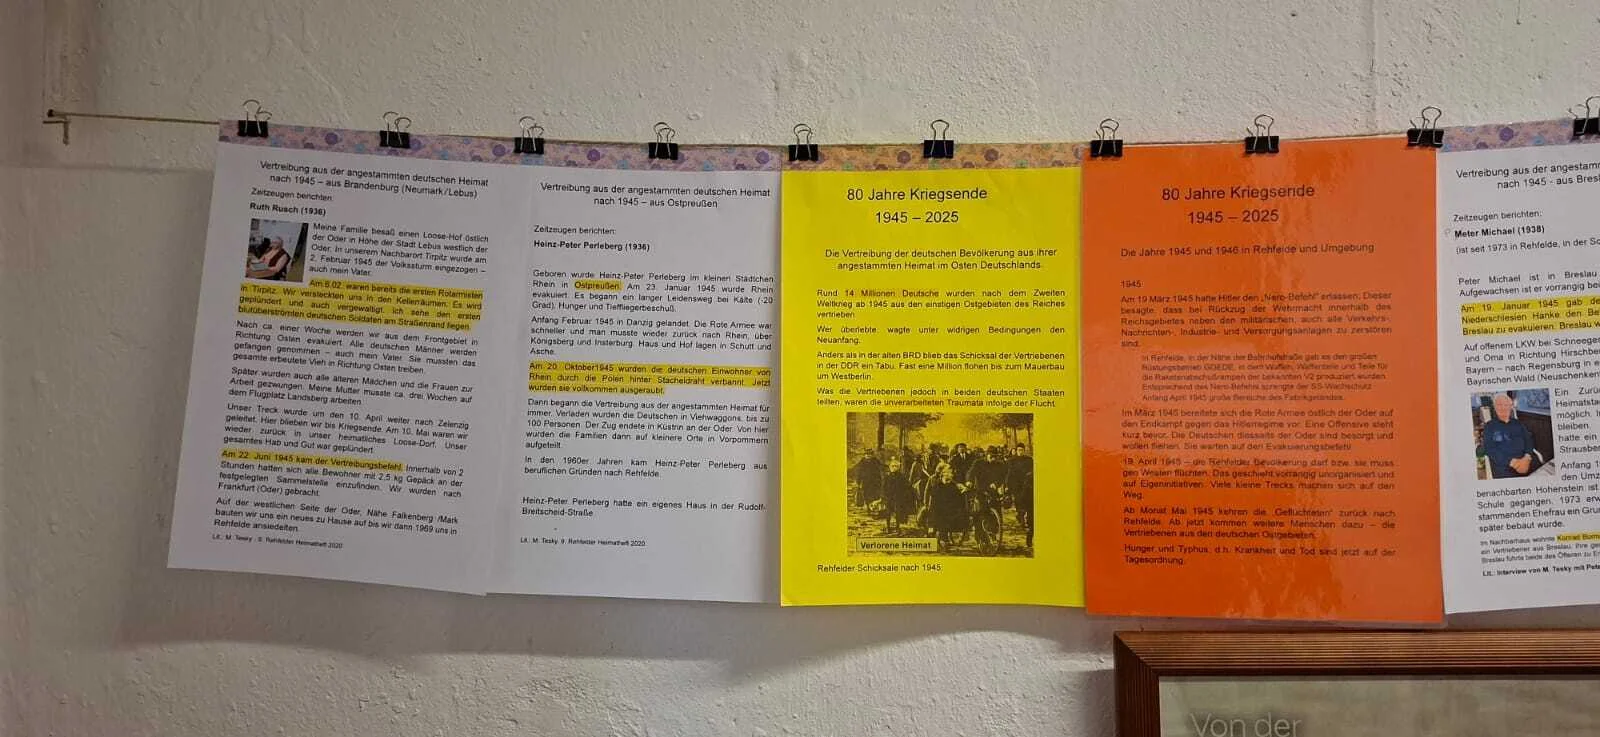 Vertreibung aus der angestammten deutschen Heimat
nach 1945 – aus Brandenburg (Neumark/Lebus)
Zeitzeugen berichten:
Ruth Rusch (1936)
Meine Familie besaß einen Loose-Hof östlich
der Oder in Höhe der Stadt Lebus westlich der
Oder. In unserem Nachbarort Tirpitz wurde am
2. Februar 1945 der Volkssturm eingezogen –
auch mein Vater.
Am 6.02. waren bereits die ersten Rotarmisten
in Tirpitz. Wir versteckten uns in den Kellerräumen. Es wird
geplündert und auch vergewaltigt. Ich sehe den ersten
blutüberströmten deutschen Soldaten am Straßenrand liegen.
Nach ca. einer Woche werden wir aus dem Frontgebiet in
Richtung Osten evakuiert. Alle deutschen Männer werden
gefangen genommen – auch mein Vater. Sie mussten das
gesamte erbeutete Vieh in Richtung Osten treiben.
Später wurden auch alle älteren Mädchen und die Frauen zur
Arbeit gezwungen. Meine Mutter musste ca. drei Wochen auf
dem Flugplatz Landsberg arbeiten.
Unser Treck wurde um den 10. April weiter nach Zielenzig
geleitet. Hier blieben wir bis Kriegsende. Am 10. Mai waren wir
wieder zurück in unser heimatliches Loose-Dorf. Unser
gesamtes Hab und Gut war geplündert.
Am 22. Juni 1945 kam der Vertreibungsbefehl. Innerhalb von 2
Stunden hatten sich alle Bewohner mit 2,5 kg Gepäck an der
festgelegten Sammelstelle einzufinden. Wir wurden nach
Frankfurt (Oder) gebracht.
Auf der westlichen Seite der Oder, Nähe Falkenberg /Mark
bauten wir uns ein neues zu Hause auf bis wir dann 1969 uns in
Rehfelde ansiedelten.
Lit.: M. Tesky : 9. Rehfelder Heimatheft 2020
Vertreibung aus der angestammten deutschen Heimat
nach 1945 – aus Ostpreußen
Zeitzeugen berichten:
Heinz-Peter Perleberg (1936)
Geboren wurde Heinz-Peter Perleberg im kleinen Städtchen
Rhein in Ostpreußen. Am 23. Januar 1945 wurde Rhein
evakuiert. Es begann ein langer Leidensweg bei Kälte (-20
Grad), Hunger und Tieffliegerbeschuß.
Anfang Februar 1945 in Danzig gelandet. Die Rote Armee war
schneller und man musste wieder zurück nach Rhein, über
Königsberg und Insterburg. Haus und Hof lagen in Schutt und
Asche.
Am 20. Oktober1945 wurden die deutschen Einwohner von
Rhein durch die Polen hinter Stacheldraht verbannt. Jetzt
wurden sie vollkommen ausgeraubt.
Dann begann die Vertreibung aus der angestammten Heimat für
immer. Verladen wurden die Deutschen in Viehwaggons, bis zu
100 Personen. Der Zug endete in Küstrin an der Oder. Von hier
wurden die Familien dann auf kleinere Orte in Vorpommern
aufgeteilt.
In den 1960er Jahren kam Heinz-Peter Perleberg aus
beruflichen Gründen nach Rehfelde.
Heinz-Peter Perleberg hatte ein eigenes Haus in der Rudolf-
Breitscheid-Straße.
Lit.: M. Tesky. 9. Rehfelder Heimatheft 2020
80 Jahre Kriegsende
1945 – 2025
Die Vertreibung der deutschen Bevölkerung aus ihrer
angestammten Heimat im Osten Deutschlands.
Rund 14 Millionen Deutsche wurden nach dem Zweiten
Weltkrieg ab 1945 aus den einstigen Ostgebieten des Reiches
vertrieben.
Wer überlebte, wagte unter widrigen Bedingungen den
Neuanfang.
Anders als in der alten BRD blieb das Schicksal der Vertriebenen
in der DDR ein Tabu. Fast eine Million flohen bis zum Mauerbau
um Westberlin.
Was die Vertriebenen jedoch in beiden deutschen Staaten
teilten, waren die unverarbeiteten Traumata infolge der Flucht.
Verlorene Heimat
Rehfelder Schicksale nach 1945.
80 Jahre Kriegsende
1945 – 2025
Die Jahre 1945 und 1946 in Rehfelde und Umgebung
1945
Am 19 März 1945 hatte Hitler den „Nero-Befehl“ erlassen; Dieser
besagte, dass bei Rückzug der Wehrmacht innerhalb des
Reichsgebietes neben den militärischen, auch alle Verkehrs-,
Nachrichten-, Industrie- und Versorgungsanlagen zu zerstören
sind.
In Rehfelde, in der Nähe der Bahnhofstraße gab es den großen
Rüstungsbetrieb GOEDE, in dem Waffen, Waffenteile und Teile für
die Raketenabschußrampen der bekannten V2 produziert wurden.
Entsprechend des Nero-Befehls sprengte der SS-Wachschutz
Anfang April 1945 große Bereiche des Fabrikgeländes.
Im März 1945 bereitete sich die Rote Armee östlich der Oder auf
den Endkampf gegen das Hitlerregime vor. Eine Offensive steht
kurz bevor. Die Deutschen diesseits der Oder sind besorgt und
wollen fliehen. Sie warten auf den Evakuierungsbefehl
19. April 1945 – die Rehfelder Bevölkerung darf bzw. sie muss
gen Westen flüchten. Das geschieht vorrangig unorganisiert und
auf Eigeninitiativen. Viele kleine Trecks machen sich auf den
Weg.
Ab Monat Mai 1945 kehren die „Geflüchteten“ zurück nach
Rehfelde. Ab jetzt kommen weitere Menschen dazu – die
Vertriebenen aus den deutschen Ostgebieten.
Hunger und Typhus, d.h. Krankheit und Tod sind jetzt auf der
Tagesordnung.
Vertreibung aus der angestamm
nach 1945 - aus Bresl
Zeitzeugen berichten:
Meter Michael (1938)
(ist seit 1973 in Rehfelde, in der Sc
Peter Michael ist in Breslau
Aufgewachsen ist er vorrangig bei
Am 19. Januar 1945 gab de
Niederschlesien Hanke den Be
Breslau zu evakuieren. Breslau w
Auf offenem LKW bei Schneeges
und Oma in Richtung Hirschber
Bayern – nach Regensburg in e
Bayrischen Wald (Neuschenken
Ein Zurüc
Heimatsta
möglich. In
bleiben.
hatte ein
Strausber
Anfang 1
den Umz
benachbarten Hohenstein ist
Schule gegangen. 1973 erw
stammenden Ehefrau ein Grun
später bebaut wurde.
Im Nachbarhaus wohnte Konrad Borm
ein Vertriebener aus Breslau. Ihre ge
Breslau führte beides des Öfteren zu E
Lit.: Interview von M. Tesky mit Pete
Von der